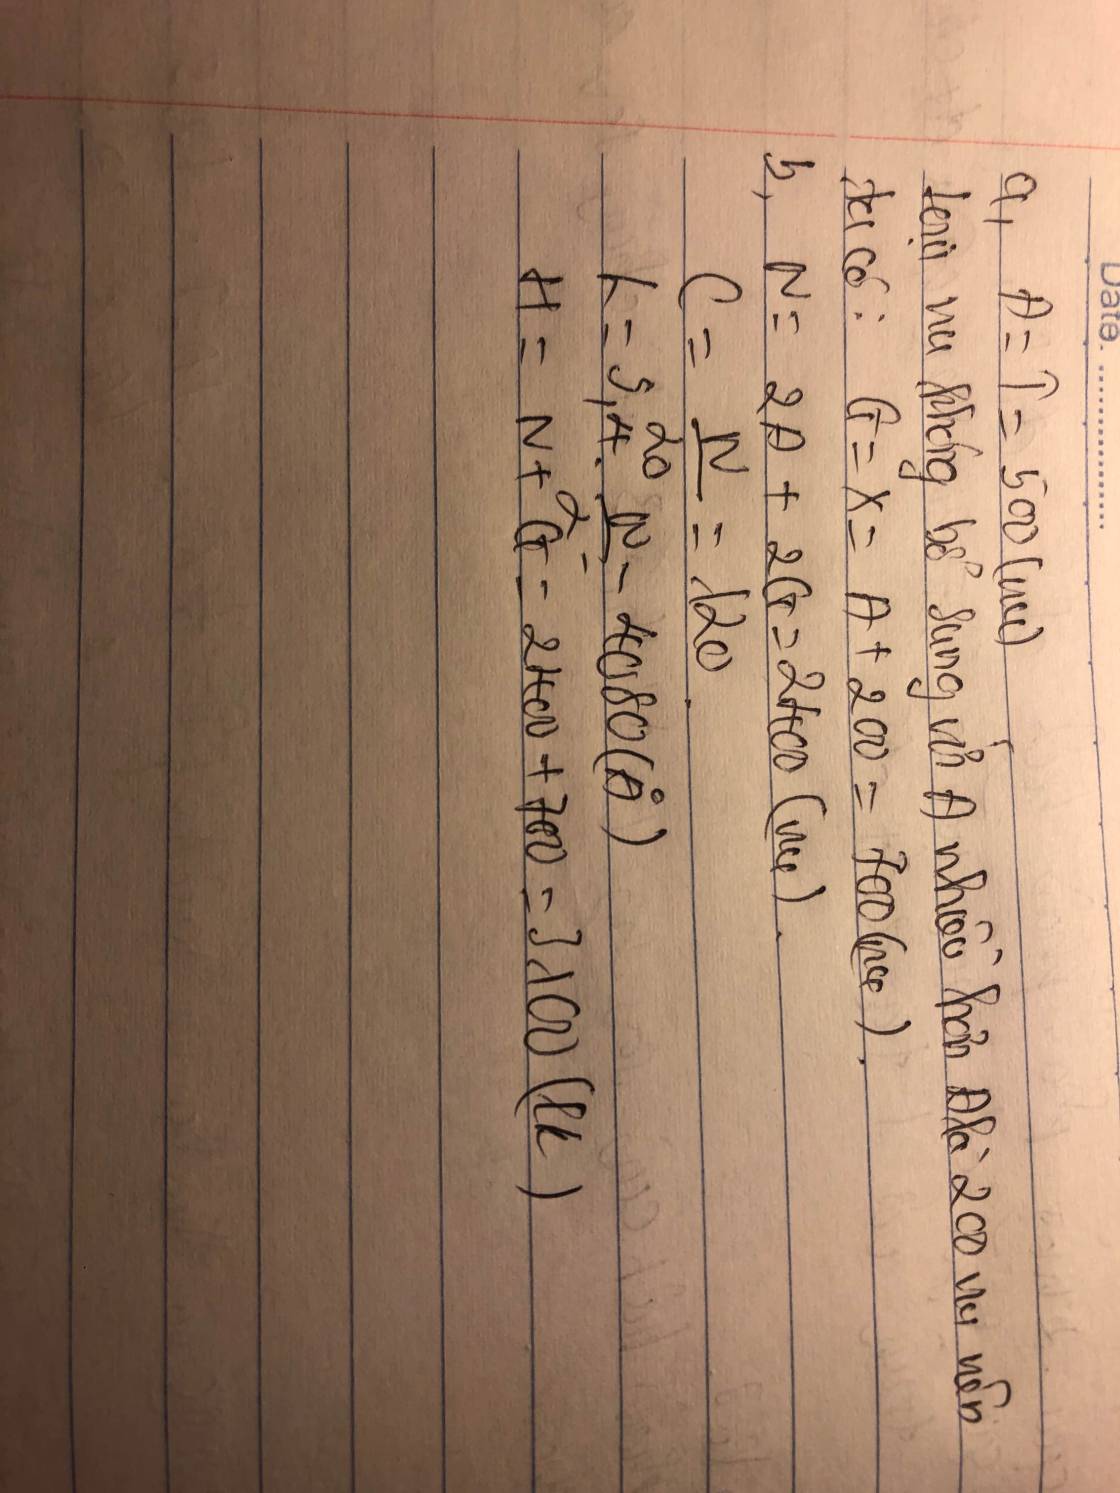 Date. ..................
a, A = T = 500 (nu)
loại nu không bổ sung với A nhiều hơn A là 200 nu nên
ta có: G = X = A + 200 = 700 (nu).
b, N = 2A + 2G = 2400 (nu).
C = N/20 = 120
L = 3,4. N/2 = 4080 (Å)
H = N + G = 2400 + 700 = 3100 (lk)